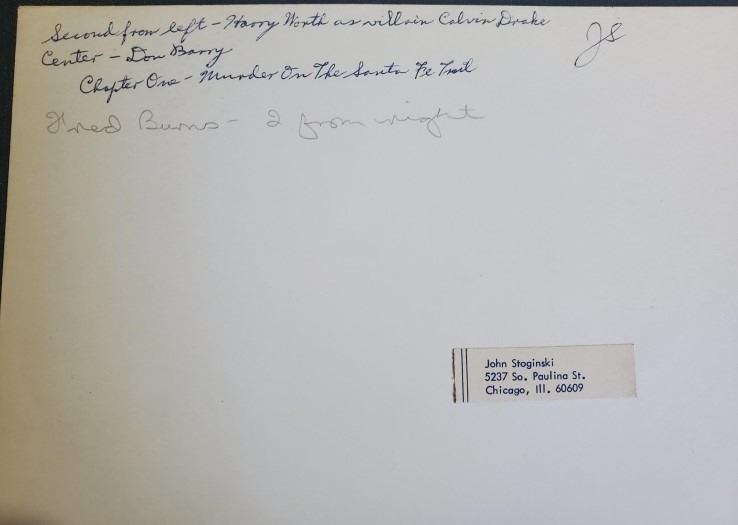 Second from left - Harry Worth as villain Calvin Drake
JS
Center - Don Barry
Chapter One - Murder On The Santa Fe Trail
Fred Burns - 2 from right
John Stoginski
5237 So. Paulina St.
Chicago, Ill. 60609